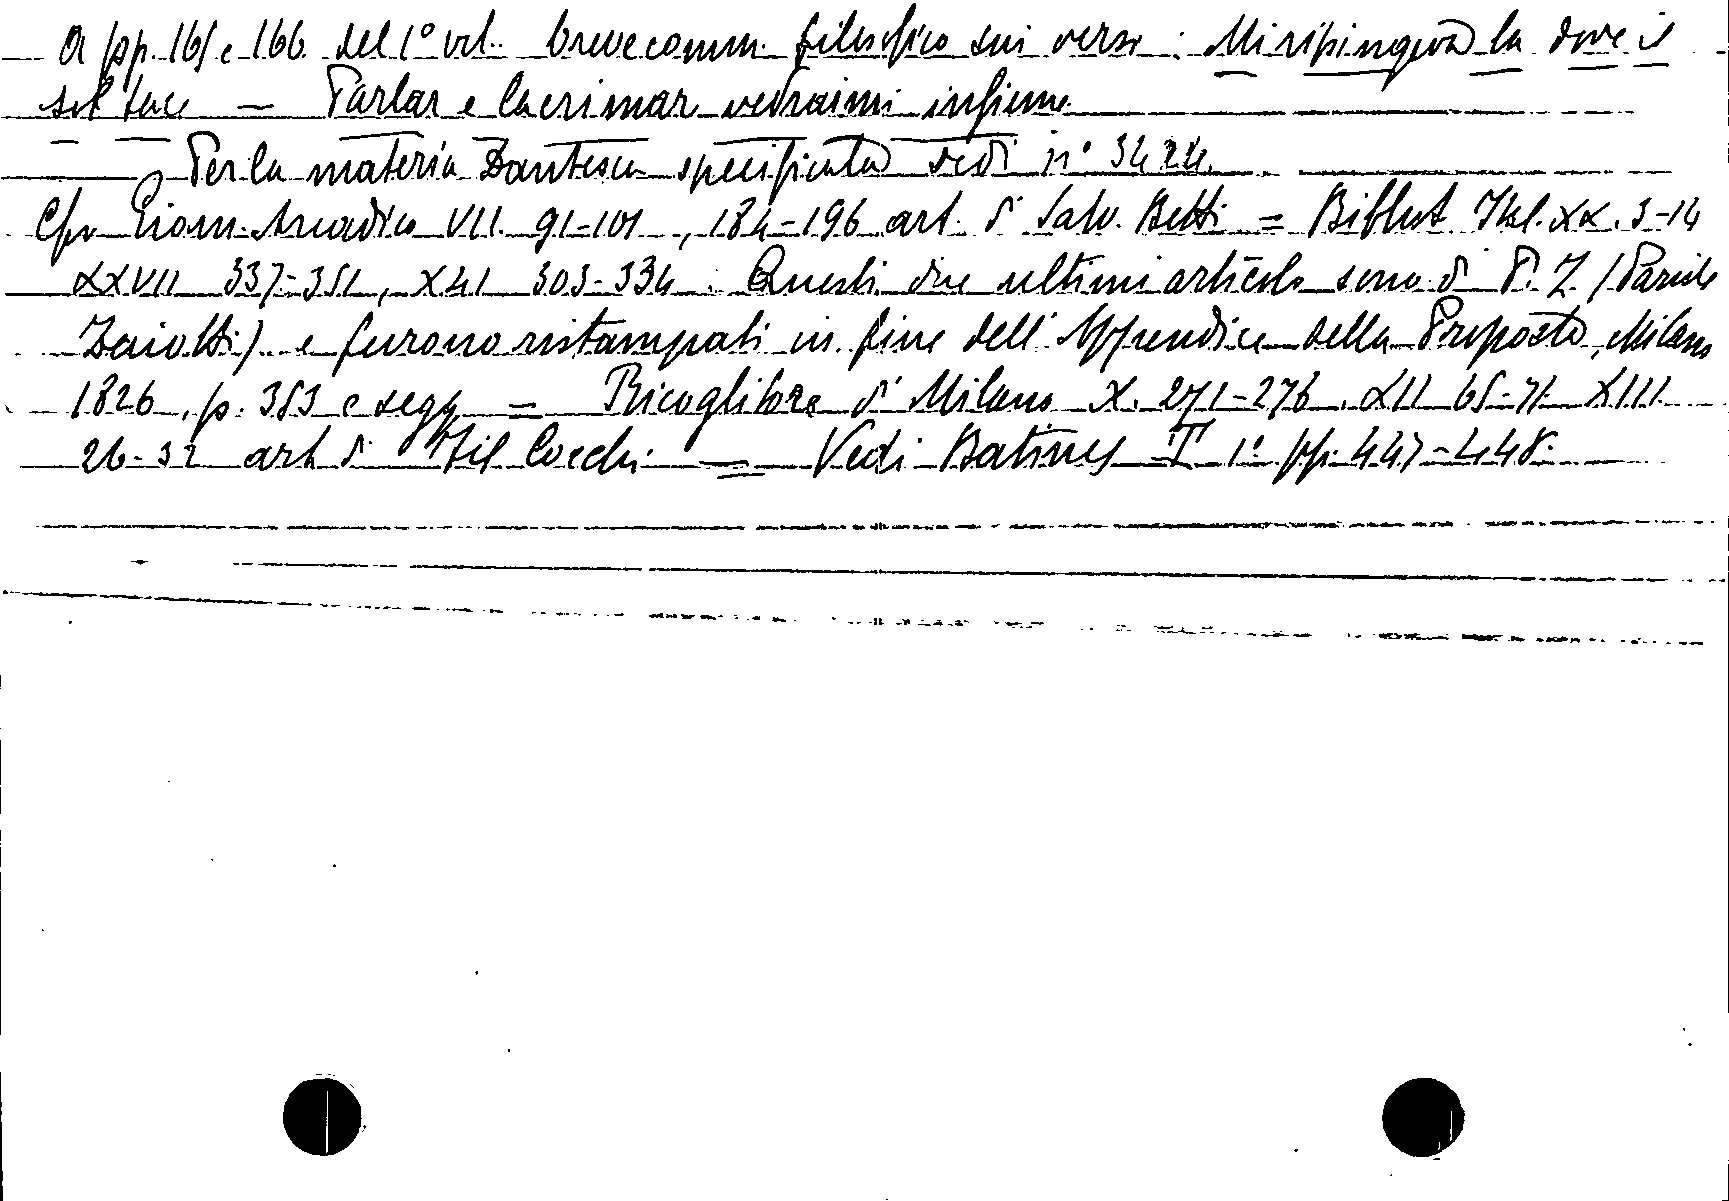 A pp. 165 e 166 del 1° vol. breve comm. filosofico sui versi: Mi ripingeva la dove il
sol tace — Parlar e lacrimar vedraimi insieme.
Per la materia Dantesca specificata vedi n° 3424.
Cfr. Giorn. Arcadico VII. 91-101, 184-196 art. di Salv. Betti = Bibliot. Ital. XX. 3-14
XXVII 337-351, XLI 303-334. Questi due ultimi articoli sono di P. Z. (Paride
Zaiotti) e furono ristampati in fine dell'Appendice della Proposta, Milano
1826, p. 353 e segg = Ricoglitore di Milano X. 271-276. XII 65-71 XIII
26-32 art di Fil Cocchi = Vedi Batines T 1° pp. 447-448.